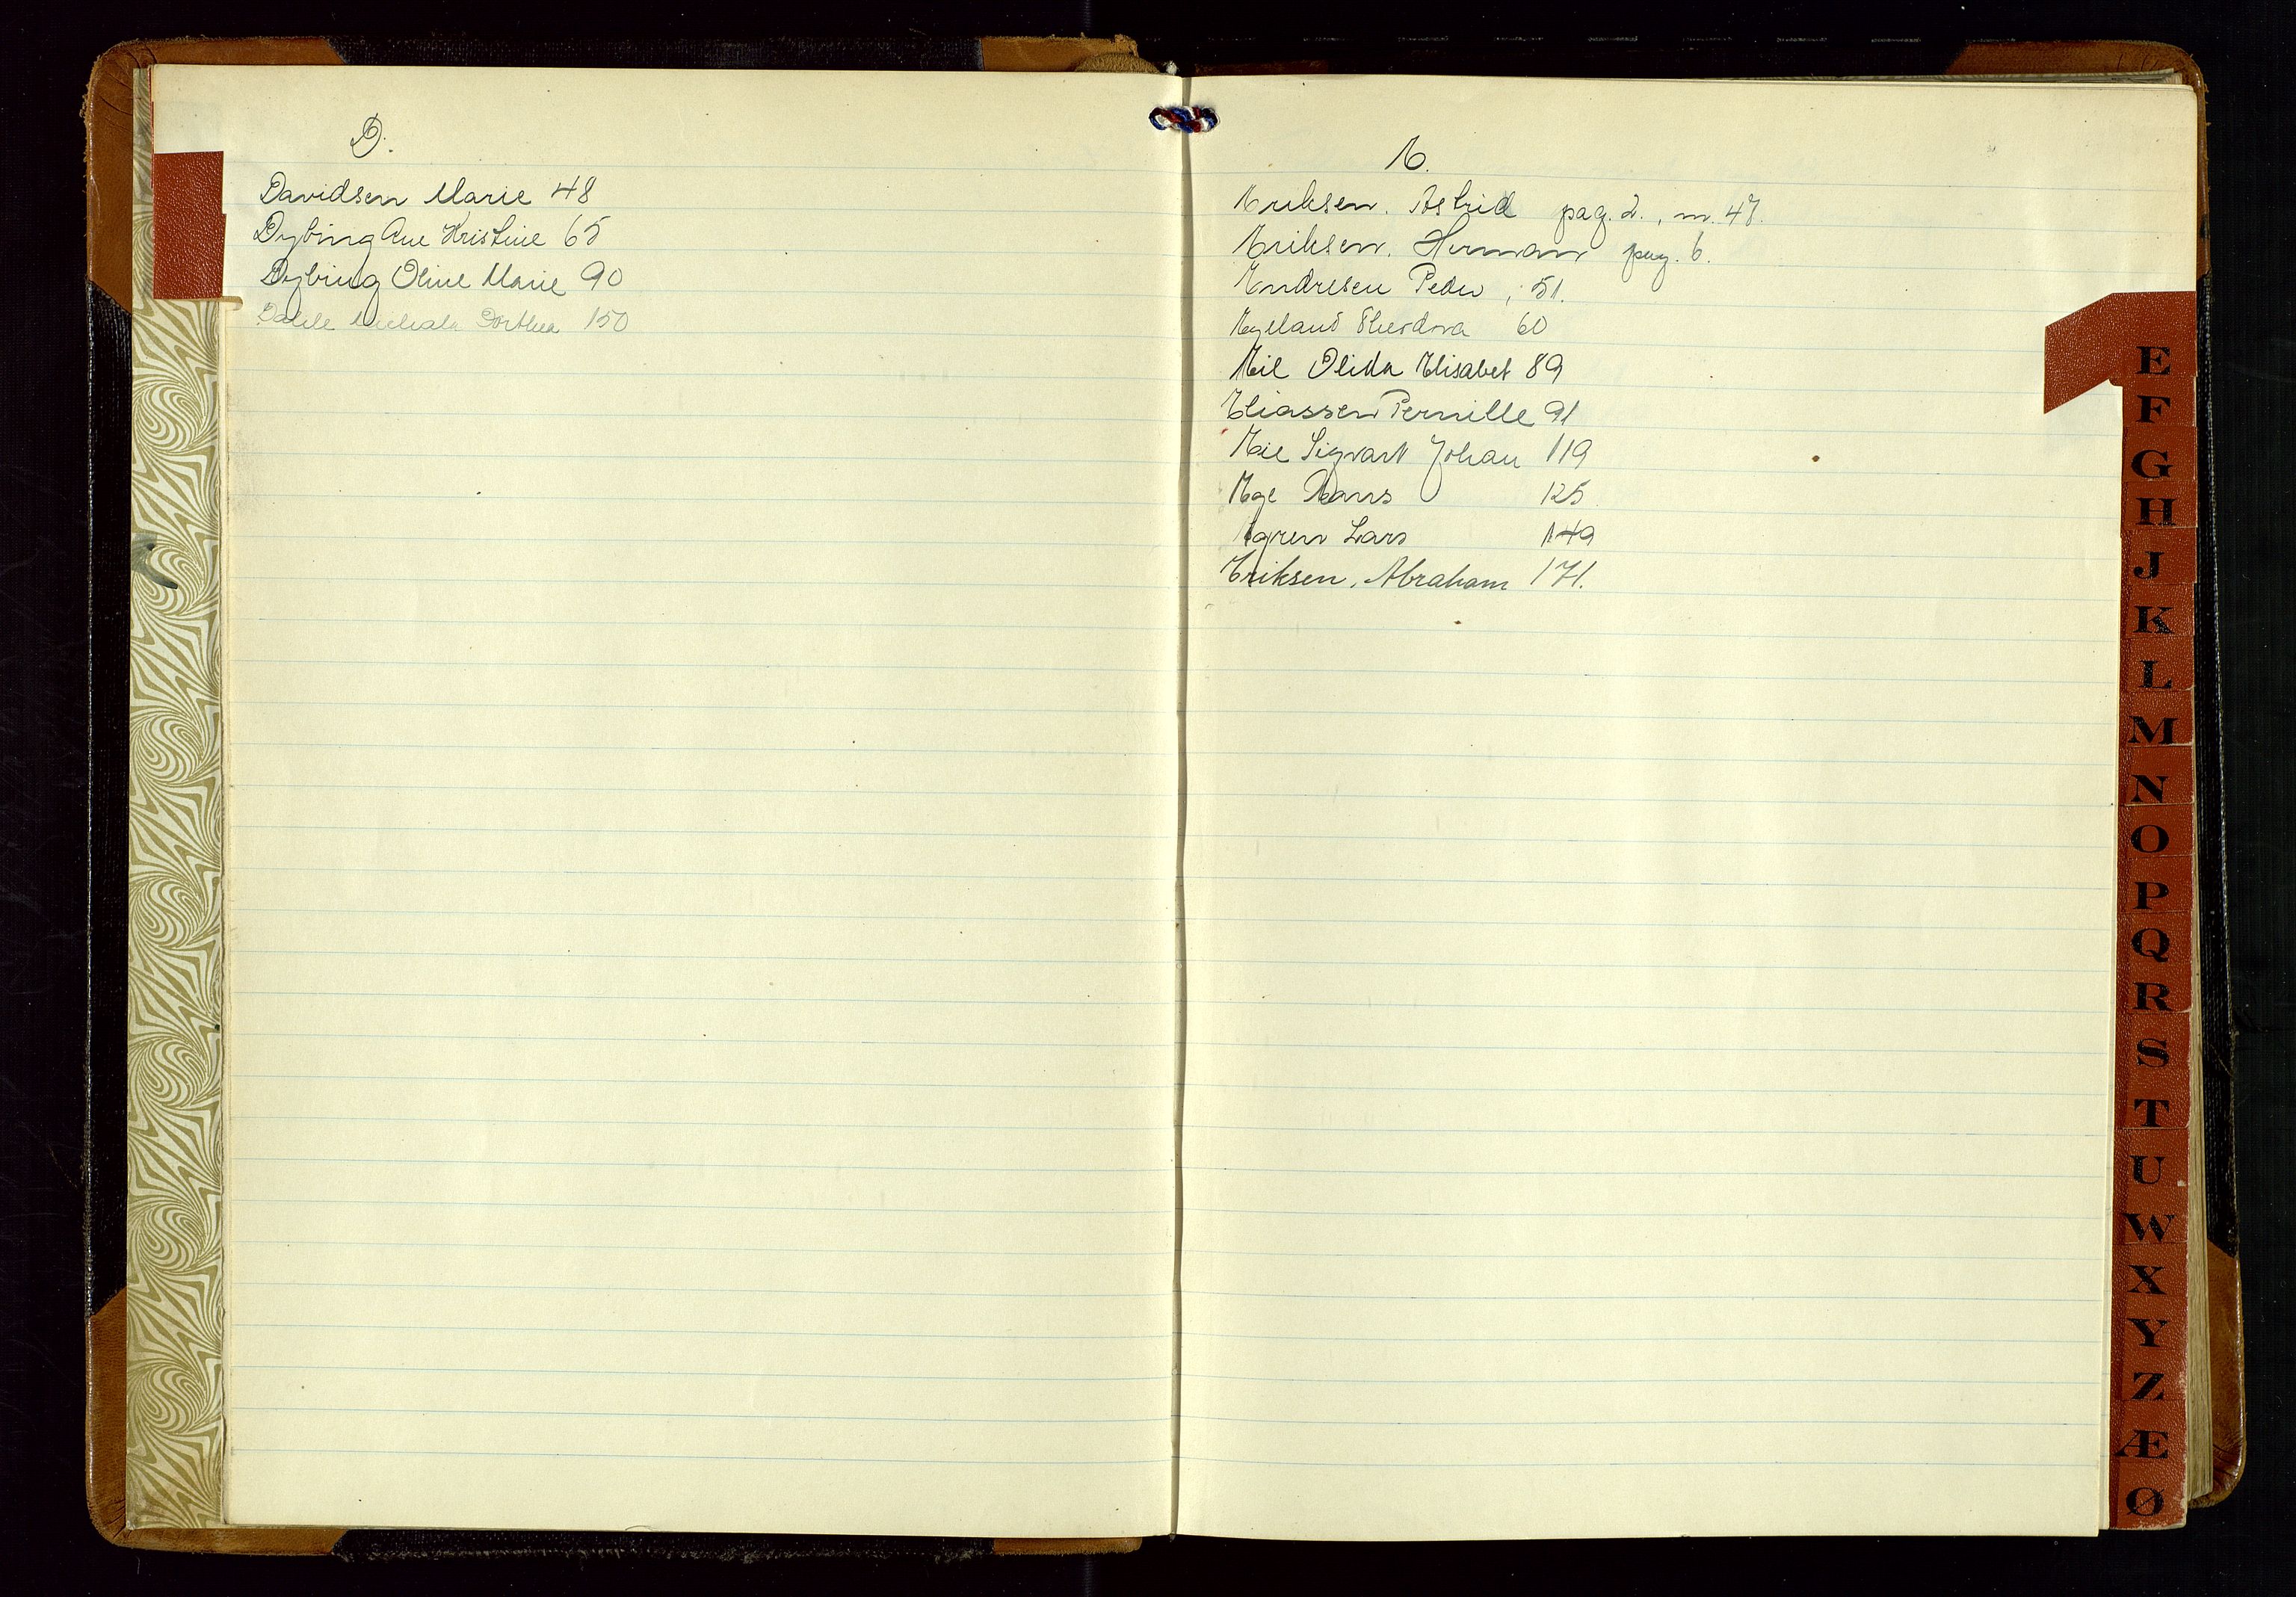 D.
Davidsen Marie 48
Dybing Ane Kristine 65
Dybing Oline Marie 90
Dahle Michala Dorthea 150
E.
Eriksen. Astrid pag. 2., m. 47.
Eriksen. Herman pag. 6.
Endresen Peder, 51.
Egeland Theodora 60
Eie Olida Elisabet 89
Eliassen Pernille 91
Eie Sigvart Johan 119
Ege Hans 125
Egren Lars 149
Eriksen, Abraham 171.
E
F
G
H
J
K
L
M
N
O
P
Q
R
S
T
U
W
X
Y
Z
Æ
Ø